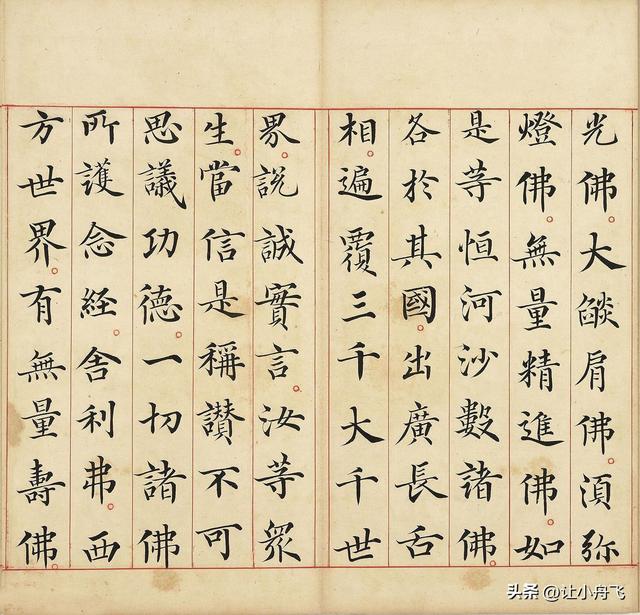 光佛。大燄肩佛。須弥
燈佛。無量精進佛。如
是等恒河沙數諸佛。
各於其國。出廣長舌
相。遍覆三千大千世
界。說誠實言。汝等眾
生。當信是稱讚不可
思議功德。一切諸佛
所護念經。舍利弗。西
方世界。有無量壽佛。
头条 @让小舟飞